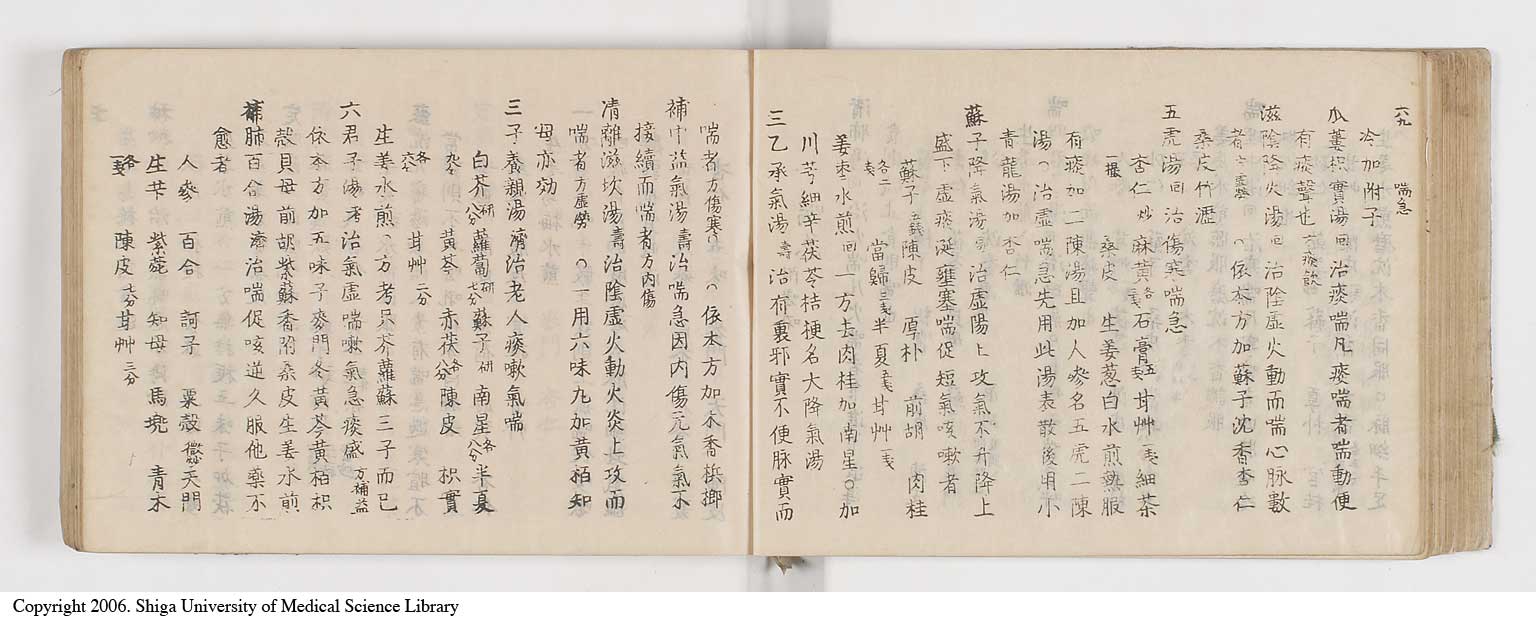 六九 喘急
冷加附子
瓜蔞枳實湯 回 治痰喘凡痰喘者喘動便
有痰聲也 痰飲
滋陰降火湯 回 治陰虛火動而喘心脉數
者 方虛労 依本方加蘇子沈香杏仁
桑皮竹瀝
五虎湯 回 治傷寒喘急
杏仁 炒 麻黄 各 戔 石膏 五戔 甘艸 戔 細茶
一撮 桑皮 生姜葱白水煎熱服
有痰加二陳湯且加人參名五虎二陳
湯 治虛喘急先用此湯表散後用小
青龍湯加杏仁
蘇子降氣湯 治虛陽上攻氣不升降上
盛下虛痰涎壅塞喘促短氣咳嗽者
蘇子 陳皮 厚朴 前胡 肉桂
各二戔 當歸 三戔 半夏 五戔 甘艸 一戔
姜枣水煎 回 一方去肉桂加南星〇加
川芎細辛茯苓桔梗名大降氣湯
三乙承氣湯 壽 治有裏邪實不便脉實而
喘者 方傷寒 依本方加木香梹榔
補中益氣湯 壽 治喘急因内傷元氣氣不
接續而喘者 方内傷
清離滋坎湯 壽 治陰虛火動火炎上攻而
喘者 方虛勞 一用六味丸加黄栢知
母亦効
三子養親湯 濟 治老人痰嗽氣喘
白芥 研 八分 蘿蔔 研 七分 蘇子 研 南星 各八分 半夏
黄芩 赤茯 各八分 陳皮 枳實
各六分 甘艸 二分
生姜水煎 方考只芥蘿蘇三子而已
六君子湯 考 治氣虛喘嗽氣急痰盛 方補益
依本方加五味子麥門冬黄芩黄栢枳
殼貝母前胡紫蘇香附桑皮生姜水煎
補肺百合湯 濟 治喘促咳逆久服他藥不
愈者
人參 百合 訶子 粟殼 天門
各 戔 生芐 紫菀 知母 馬兜 青木
陳皮 七分 甘艸 三分